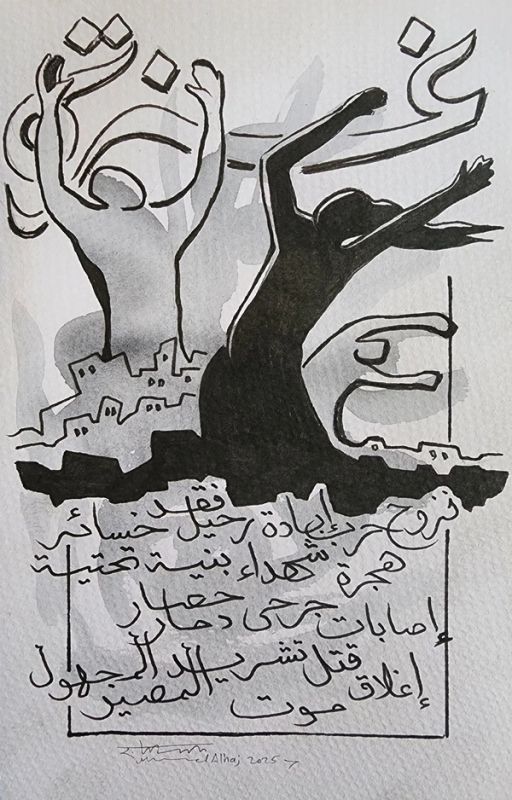 غزة
نزوح حرب إبادة رحيل فقد خسائر
هجرة شهداء بنية تحتية
إصابات جرحى دمار حصار
قتل تشريد المجهول
إغلاق موت المصير
Alhaj 2025